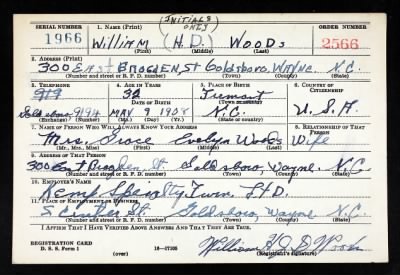 (INITIALS
SERIAL NUMBER 1. NAME (Print) ONLY) ORDER NUMBER
1966 William (H.D.) Woods 2566
(First) (Middle) (Last)
2. ADDRESS (Print)
300 East Brogden St Goldsboro, Wayne N.C.
(Number and street or R. F. D. number) (Town) (County) (State)
3. TELEPHONE 4. AGE IN YEARS 5. PLACE OF BIRTH 6. COUNTRY OF CITIZENSHIP
919 Fremont
DATE OF BIRTH (Town or county)
Goldsboro 919 MAY 9 1908 N.C. U.S.A.
(Exchange) (Number) (Mo.) (Day) (Yr.) (State or country)
7. NAME OF PERSON WHO WILL ALWAYS KNOW YOUR ADDRESS 8. RELATIONSHIP OF THAT PERSON
Mrs. Grace Evelyn Woods Wife
(Mr., Mrs., Miss) (First) (Middle) (Last)
9. ADDRESS OF THAT PERSON
300 East Brogden St. Goldsboro, Wayne N.C.
(Number and street or R. F. D. number) (Town) (County) (State)
10. EMPLOYER'S NAME
Kemp Specialty Furn.
11. PLACE OF EMPLOYMENT OR BUSINESS
S. Center St. Goldsboro, Wayne N.C.
(Number and street or R. F. D. number) (Town) (County) (State)
I AFFIRM THAT I HAVE VERIFIED ABOVE ANSWERS AND THAT THEY ARE TRUE.
REGISTRATION CARD
D. S. S. Form 1 16—17105 William H. D. Woods
(Registrant's signature)